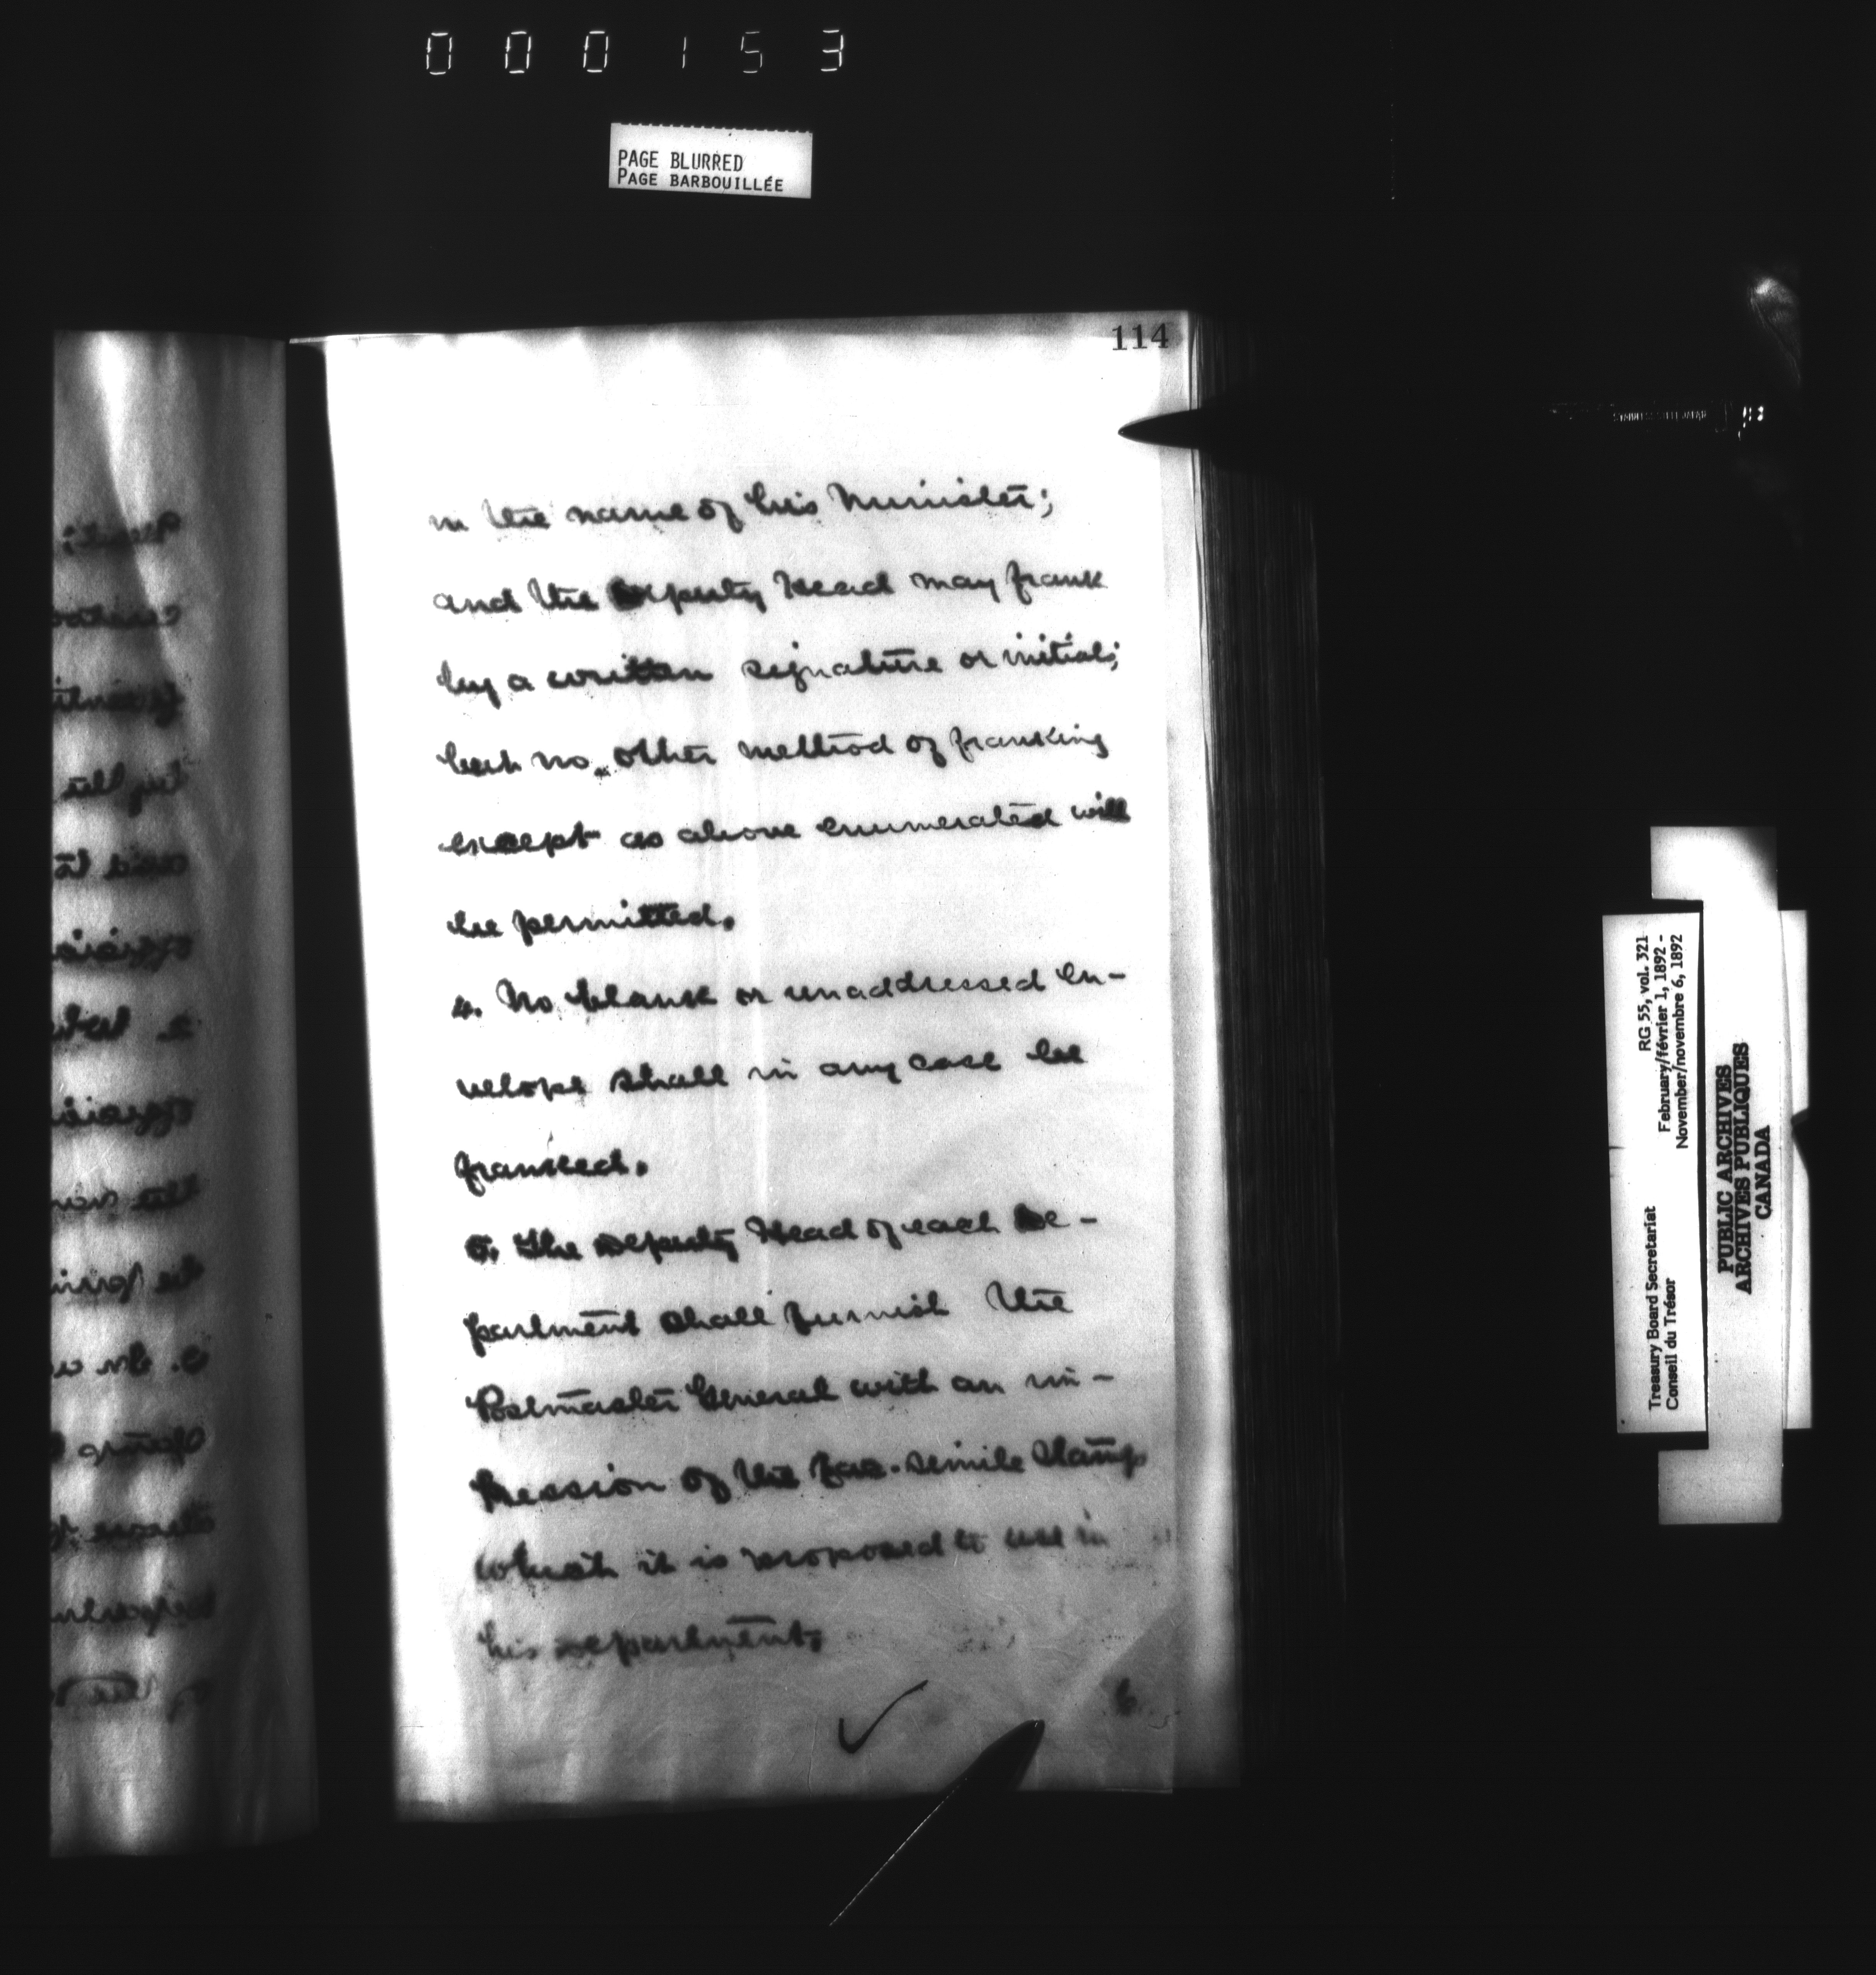 000153
PAGE BLURRED
PAGE BARBOUILLÉE
114
in the name of his Minister;
and the Deputy Head may frank
by a written signature or initial;
but no other method of franking
except as above enumerated will
be permitted.
4. No blank or unaddressed en-
velope shall in any case be
franked.
5. The Deputy Head of each De-
partment shall furnish the
Postmaster General with an im-
pression of the fac-simile stamp
which it is proposed to use in
his Department.
6
RG 55, vol. 321
February/février 1, 1892 -
November/novembre 6, 1892
Treasury Board Secretariat
Conseil du Trésor
PUBLIC ARCHIVES
ARCHIVES PUBLIQUES
CANADA